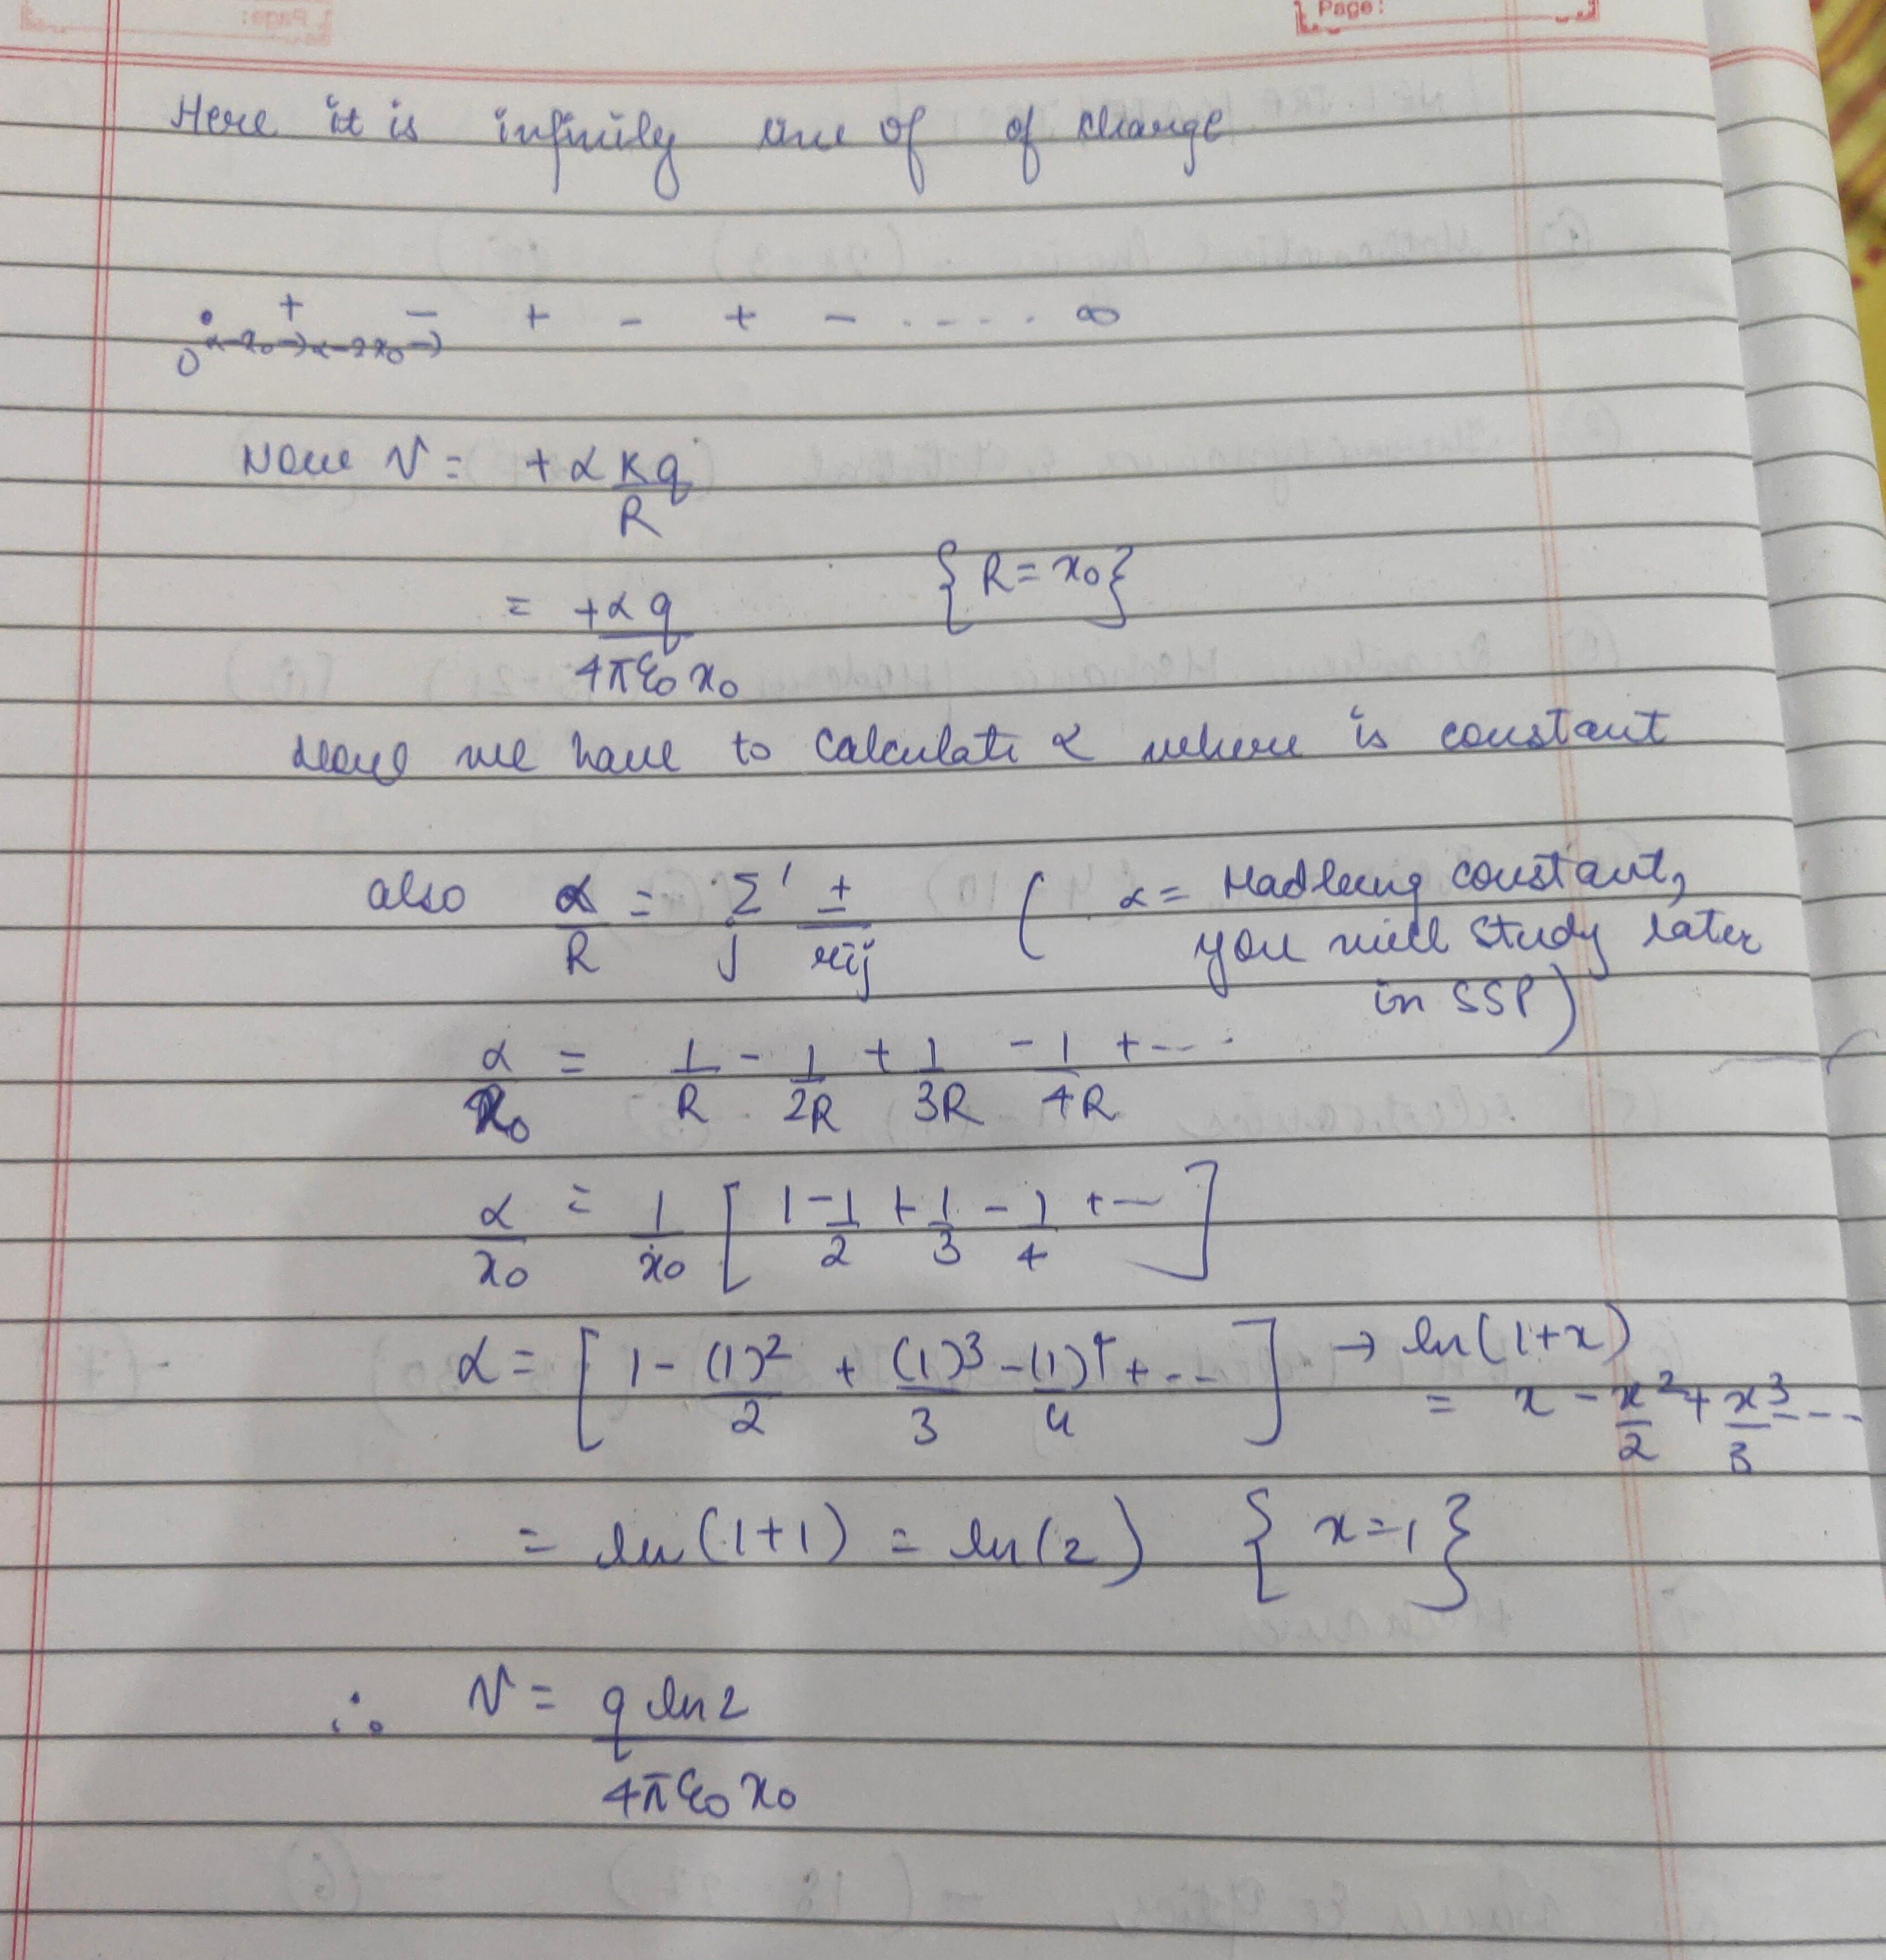 Page:
Here it is infinity line of of charge
• + - + - + - ..... ∞
O ←x₀→←2x₀→
Now V = +α Kq/R
= +αq/4πε₀x₀ {R = x₀}
we have to calculate α where is constant
also α/R = Σ'j ±/rij ( α = Madleung constant,
you will study later
in SSP)
α/x₀ = 1/R - 1/2R + 1/3R - 1/4R + ....
α/x₀ = 1/x₀ [1 - 1/2 + 1/3 - 1/4 + --]
α = [1 - (1)²/2 + (1)³/3 - (1)⁴/4 + ...] → ln(1+x)
= x - x²/2 + x³/3 ---
= ln(1+1) = ln(2) {x=1}
∴ V = q ln2/4πε₀x₀